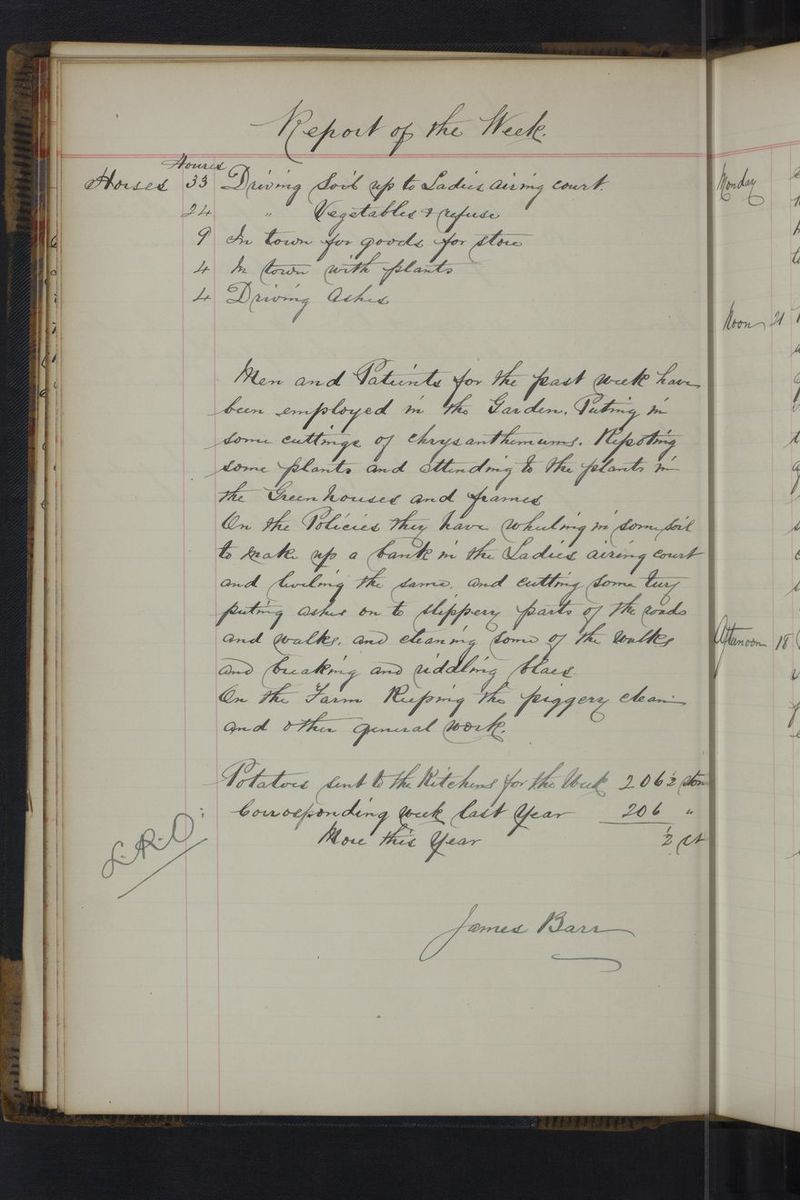 Report of the Week.
Hours
Horses 33 Driving Soil up to Ladies airing court.
24 " Vegetables & refuse
9 In town for goods for store
4 In town with plants
4 Driving Ashes
Men and Patients for the past week have
been employed in the Garden. Puting in
some cuttings of chrysanthemums. Repoting
some plants and attending to the plants in
the Green houses and frames
On the Policies they have wheeling in some soil
to make up a bank in the Ladies airing court
and leveling the same. and cutting some turf
puting ashes on to slippery parts of the roads
and walks. and cleaning some of the walks
and breaking and riddling blaes
On the Farm Keeping the piggery clean
and other general work.
Potatoes sent to the Kitchens for the Week 206½ stone
Corrosponding week last Year 206 "
More this Year ½ st
L.R.O.
James Barr
Monday
Noon 21
Afternoon 18